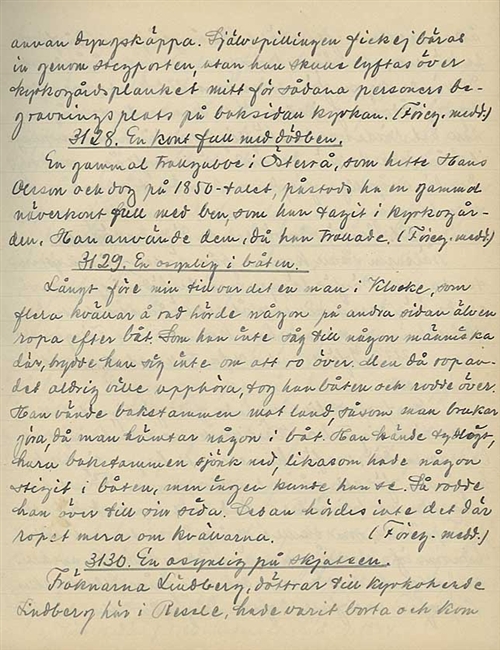 annan dyngskäppa. Självspillingen fick ej bäras
in genom stegporten, utan han skulle lyftas över
kyrkogårdsplanket mitt för sådana personers be-
gravningsplats på baksidan kyrkan. (Föreg. medd.)
3128. En kont full med dödben.
En gammal trollgubbe i Österå, som hette Hans
Olsson och dog på 1850-talet, påstods ha en gammal
näverkont full med ben, som han tagit i kyrkogår-
den. Han använde dem, då han trollade. (Föreg. medd.)
3129. En osynlig i båten.
Långt före min tid var det en man i Klocke, som
flera kvällar å rad hörde någon på andra sidan älven
ropa efter båt. Som han inte såg till någon människa
där, brydde han sig inte om att ro över. Men då ropan-
det aldrig ville upphöra, tog han båten och rodde över.
Han vände bakstammen mot land, såsom man brukar
göra, då man hämtar någon i båt. Han kände tydligt,
huru bakstammen sjönk ned, likasom hade någon
stigit i båten, men ingen kunde han se. Så rodde
han över till sin sida. Sedan hördes inte det där
ropet mera om kvällarna. (Föreg. medd.)
3130. En osynlig på skjutsen.
Fröknarna Lindberg, döttrar till kyrkoherde
Lindberg här i Ressle, hade varit borta och kom